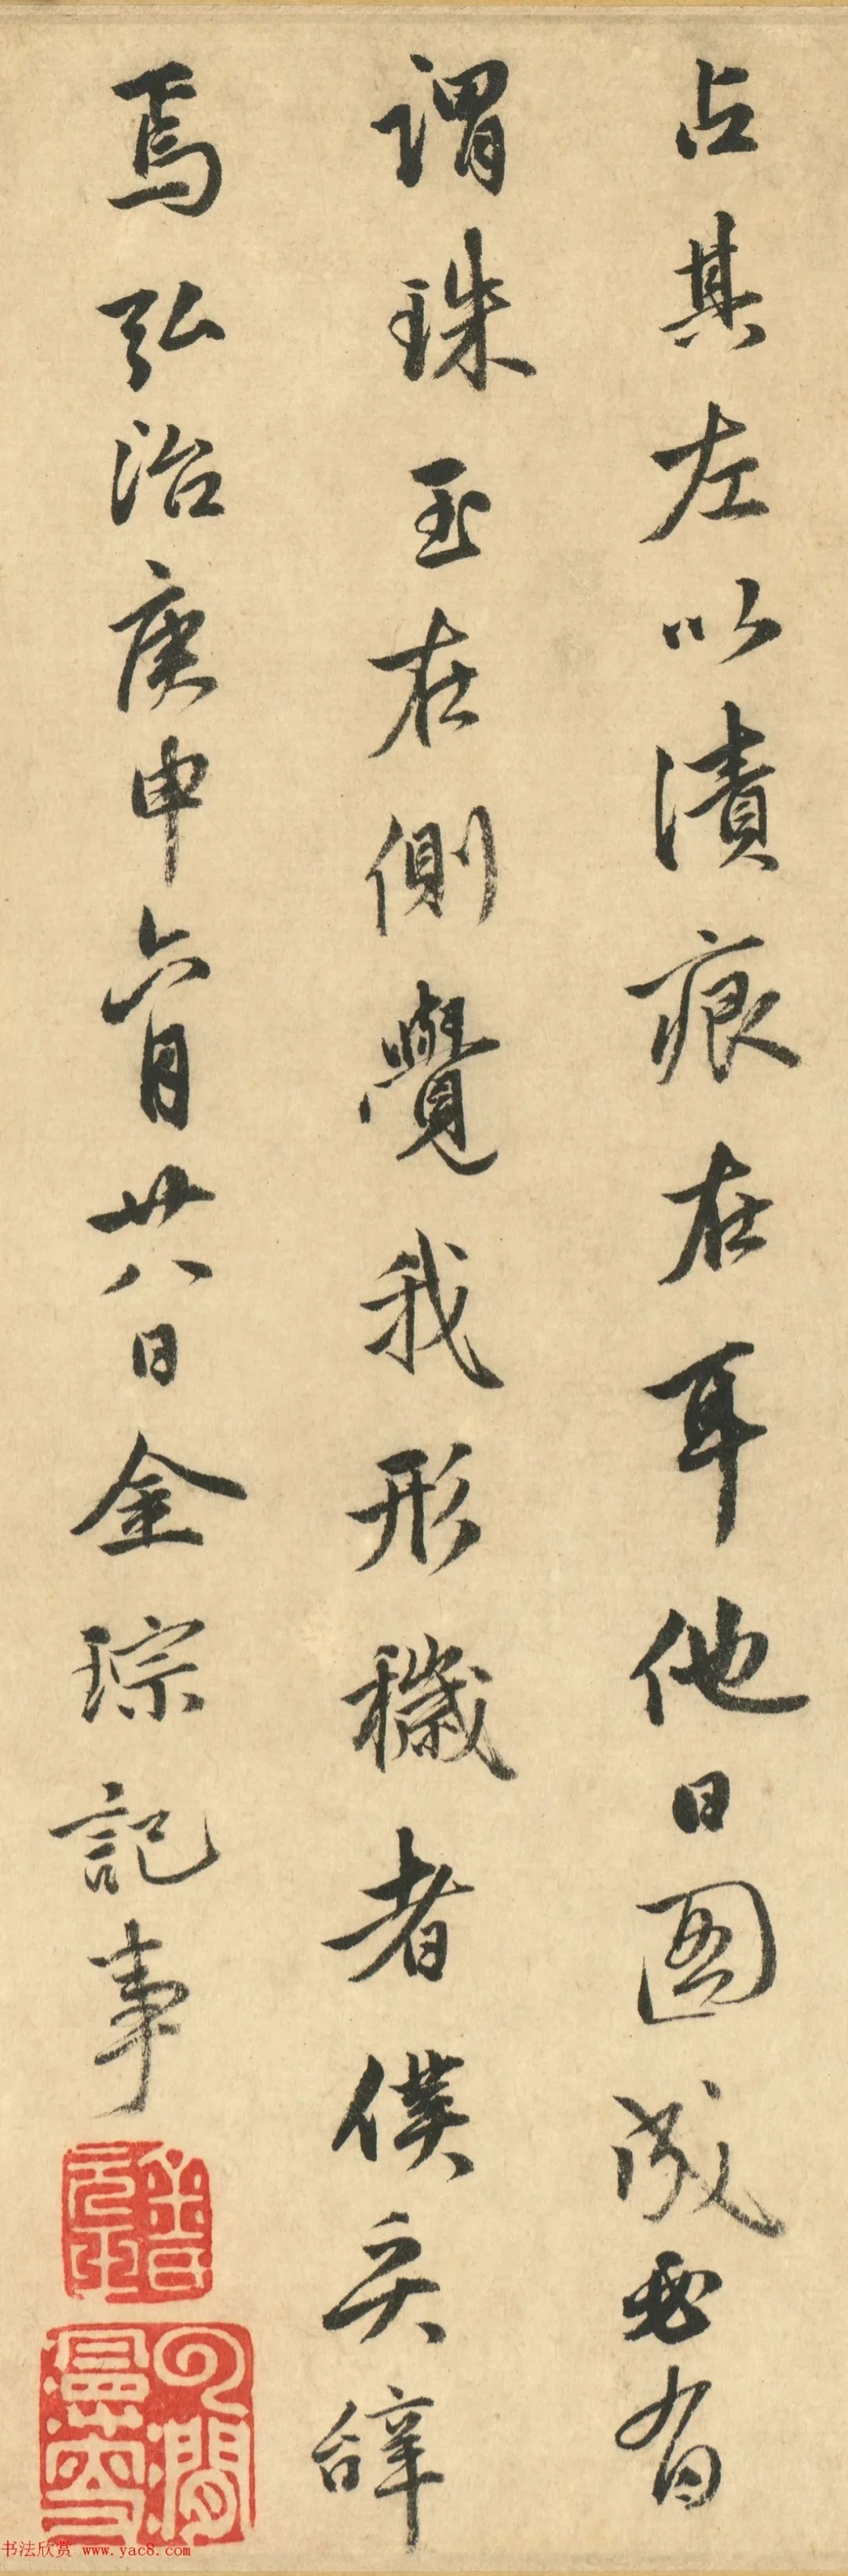 占其左以漬痕在耳他日圖成必有
謂珠玉在側覺我形穢者僕奚辭
焉弘治庚申六月廿八日金琮記事
书法欣赏 www.yac8.com